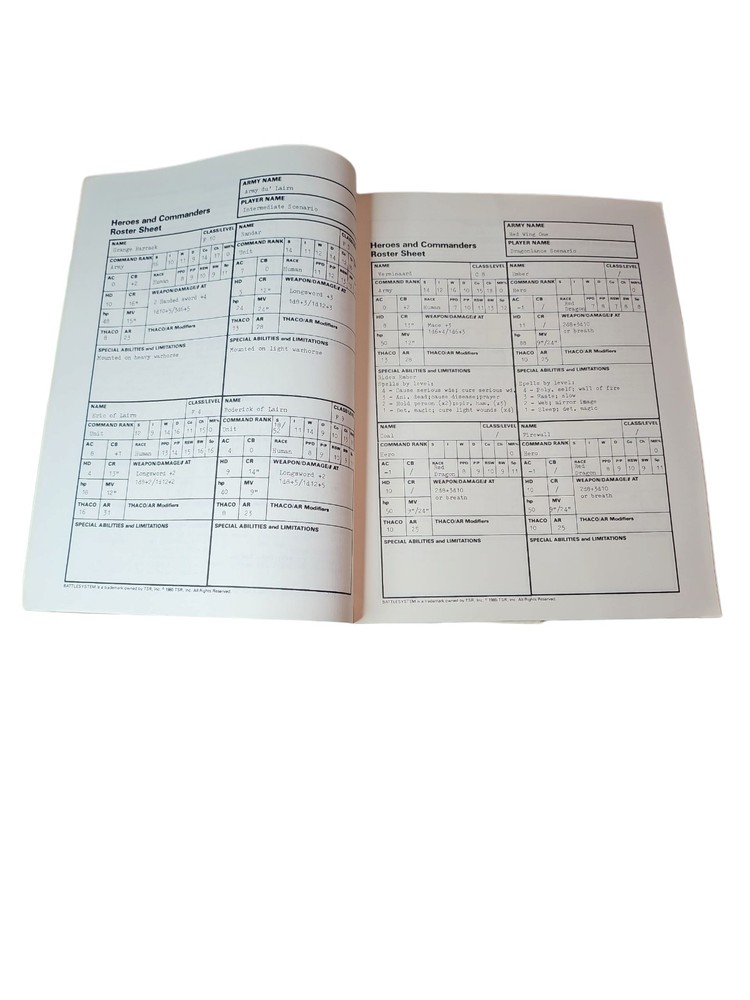 Heroes and Commanders
Roster Sheet
ARMY NAME
Army du' Lairn
PLAYER NAME
Intermediate Scenario
NAME
CLASS/LEVEL
F 10
COMMAND RANK S I W D Co Ch MP%
Army
AC CB RACE PPD P/P RSW BW Sp
0 +2 Human
HD CR WEAPON/DAMAGE/# AT
2 Handed sword +4
hp MV
THACO AR THACO/AR Modifiers
SPECIAL ABILITIES and LIMITATIONS
Mounted on heavy warhorse
NAME
Sandar
CLASS/LEVEL
COMMAND RANK S I W D Co
Unit
AC CB RACE PPD P/P RSW
0 Human
HD CR WEAPON/DAMAGE/# AT
5 12" Longsword +3
1d8+3/1d12+3
hp MV
24 24"
THACO AR THACO/AR Modifiers
13 28
SPECIAL ABILITIES and LIMITATIONS
Mounted on light warhorse
NAME
Eric of Lairn
CLASS/LEVEL
F 4
COMMAND RANK S I W D Co Ch MP%
Unit
AC CB RACE PPD P/P RSW BW Sp
8 +1 Human
HD CR WEAPON/DAMAGE/# AT
4 13" Longsword +2
1d8+2/1d12+2
hp MV
30 12"
THACO AR THACO/AR Modifiers
16 31
SPECIAL ABILITIES and LIMITATIONS
NAME
Roderick of Lairn
CLASS/LEVEL
COMMAND RANK S I W D Co
Unit
AC CB RACE PPD P/P RSW BW
4 0 Human
HD CR WEAPON/DAMAGE/# AT
9 14" Longsword +2
1d8+5/1d12+5
hp MV
40 9"
THACO AR THACO/AR Modifiers
8 23
SPECIAL ABILITIES and LIMITATIONS
BATTLESYSTEM is a trademark owned by TSR, Inc. © 1985 TSR, Inc. All Rights Reserved.
Heroes and Commanders
Roster Sheet
ARMY NAME
Red Wing One
PLAYER NAME
Dragonlance Scenario
NAME
Verminaard
CLASS/LEVEL
C 8
COMMAND RANK S I W D Co Ch MP%
Army 14 12 16 10 15 16 0
AC CB RACE PPD P/P RSW BW Sp
0 +2 Human
HD CR WEAPON/DAMAGE/# AT
8 Mace +3
1d6+4/1d6+3
hp MV
50 12"
THACO AR THACO/AR Modifiers
13 28
SPECIAL ABILITIES and LIMITATIONS
Rides Ember
Spells by level:
4 - Cause serious wds; cure serious wd.
3 - Ani. dead;cause disease;prayer
2 - Hold person (x2);spir. ham. (x3)
1 - Det. magic; cure light wounds (x4)
NAME
Ember
CLASS/LEVEL
/
COMMAND RANK S I W D Co Ch MP%
Hero 0
AC CB RACE PPD P/P RSW BW Sp
-1 / Red
Dragon
HD CR WEAPON/DAMAGE/# AT
11 / 2d8+3d10
or breath
hp MV
88 9"/24"
THACO AR THACO/AR Modifiers
10 25
SPECIAL ABILITIES and LIMITATIONS
Spells by level:
4 - Poly. self; wall of fire
3 - Haste; slow
2 - Web; mirror image
1 - Sleep; det. magic
NAME
Coal
CLASS/LEVEL
/
COMMAND RANK S I W D Co Ch MP%
Hero 0
AC CB RACE PPD P/P RSW BW Sp
-1 / Red
Dragon 8 9 10 9 11
HD CR WEAPON/DAMAGE/# AT
10 / 2d8+3d10
or breath
hp MV
50 9"/24"
THACO AR THACO/AR Modifiers
10 25
SPECIAL ABILITIES and LIMITATIONS
NAME
Firewall
CLASS/LEVEL
/
COMMAND RANK S I W D Co Ch MP%
Hero 0
AC CB RACE PPD P/P RSW BW Sp
-1 / Red
Dragon 8 9 10 9 11
HD CR WEAPON/DAMAGE/# AT
10 / 2d8+3d10
or breath
hp MV
50 9"/24"
THACO AR THACO/AR Modifiers
10 25
SPECIAL ABILITIES and LIMITATIONS
BATTLESYSTEM is a trademark owned by TSR, Inc. © 1985 TSR, Inc. All Rights Reserved.